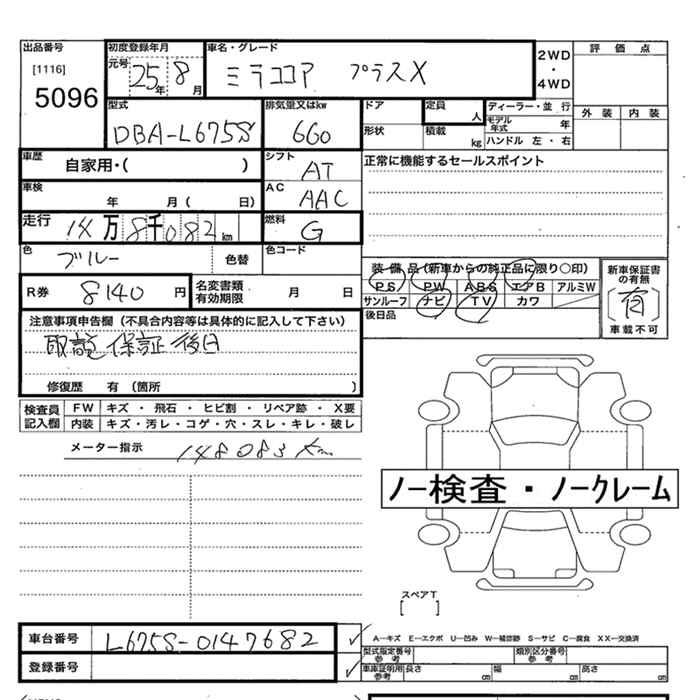 出品番号 初度登録年月 車名・グレード 2WD・4WD 評価点
[1116] 元号 25年 8月 ミラココア プラスX
5096
型式 排気量又はkw ドア 定員 人 ディーラー・並行 外装 内装
DBA-L675S 660 形状 積載 kg モデル年式 年
ハンドル 左・右
車歴 自家用・( ) シフト AT 正常に機能するセールスポイント
車検 年 月( 日) AC AAC
走行 14万8千082km 燃料 G
色 ブルー 色替 色コード
装備品(新車からの純正品に限り○印) 新車保証書の有無
R券 8140円 名変書類有効期限 月 日 PS PW ABS エアB アルミW (有)
サンルーフ ナビ TV カワ 車載不可
注意事項申告欄(不具合内容等は具体的に記入して下さい) 後日品
取説 保証 後日
修復歴 有 (箇所 )
検査員記入欄 FW キズ・飛石・ヒビ割・リペア跡・X要
内装 キズ・汚レ・コゲ・穴・スレ・キレ・破レ
メーター指示 148083km
ノー検査・ノークレーム
スペアT
[ ]
車台番号 L675S-0147682 A-キズ E-エクボ U-凹み W-補修跡 S-サビ C-腐食 XX-交換済
型式指定番号参考 類別区分番号参考
登録番号 車庫証明用参考 長さ cm 幅 cm 高さ cm